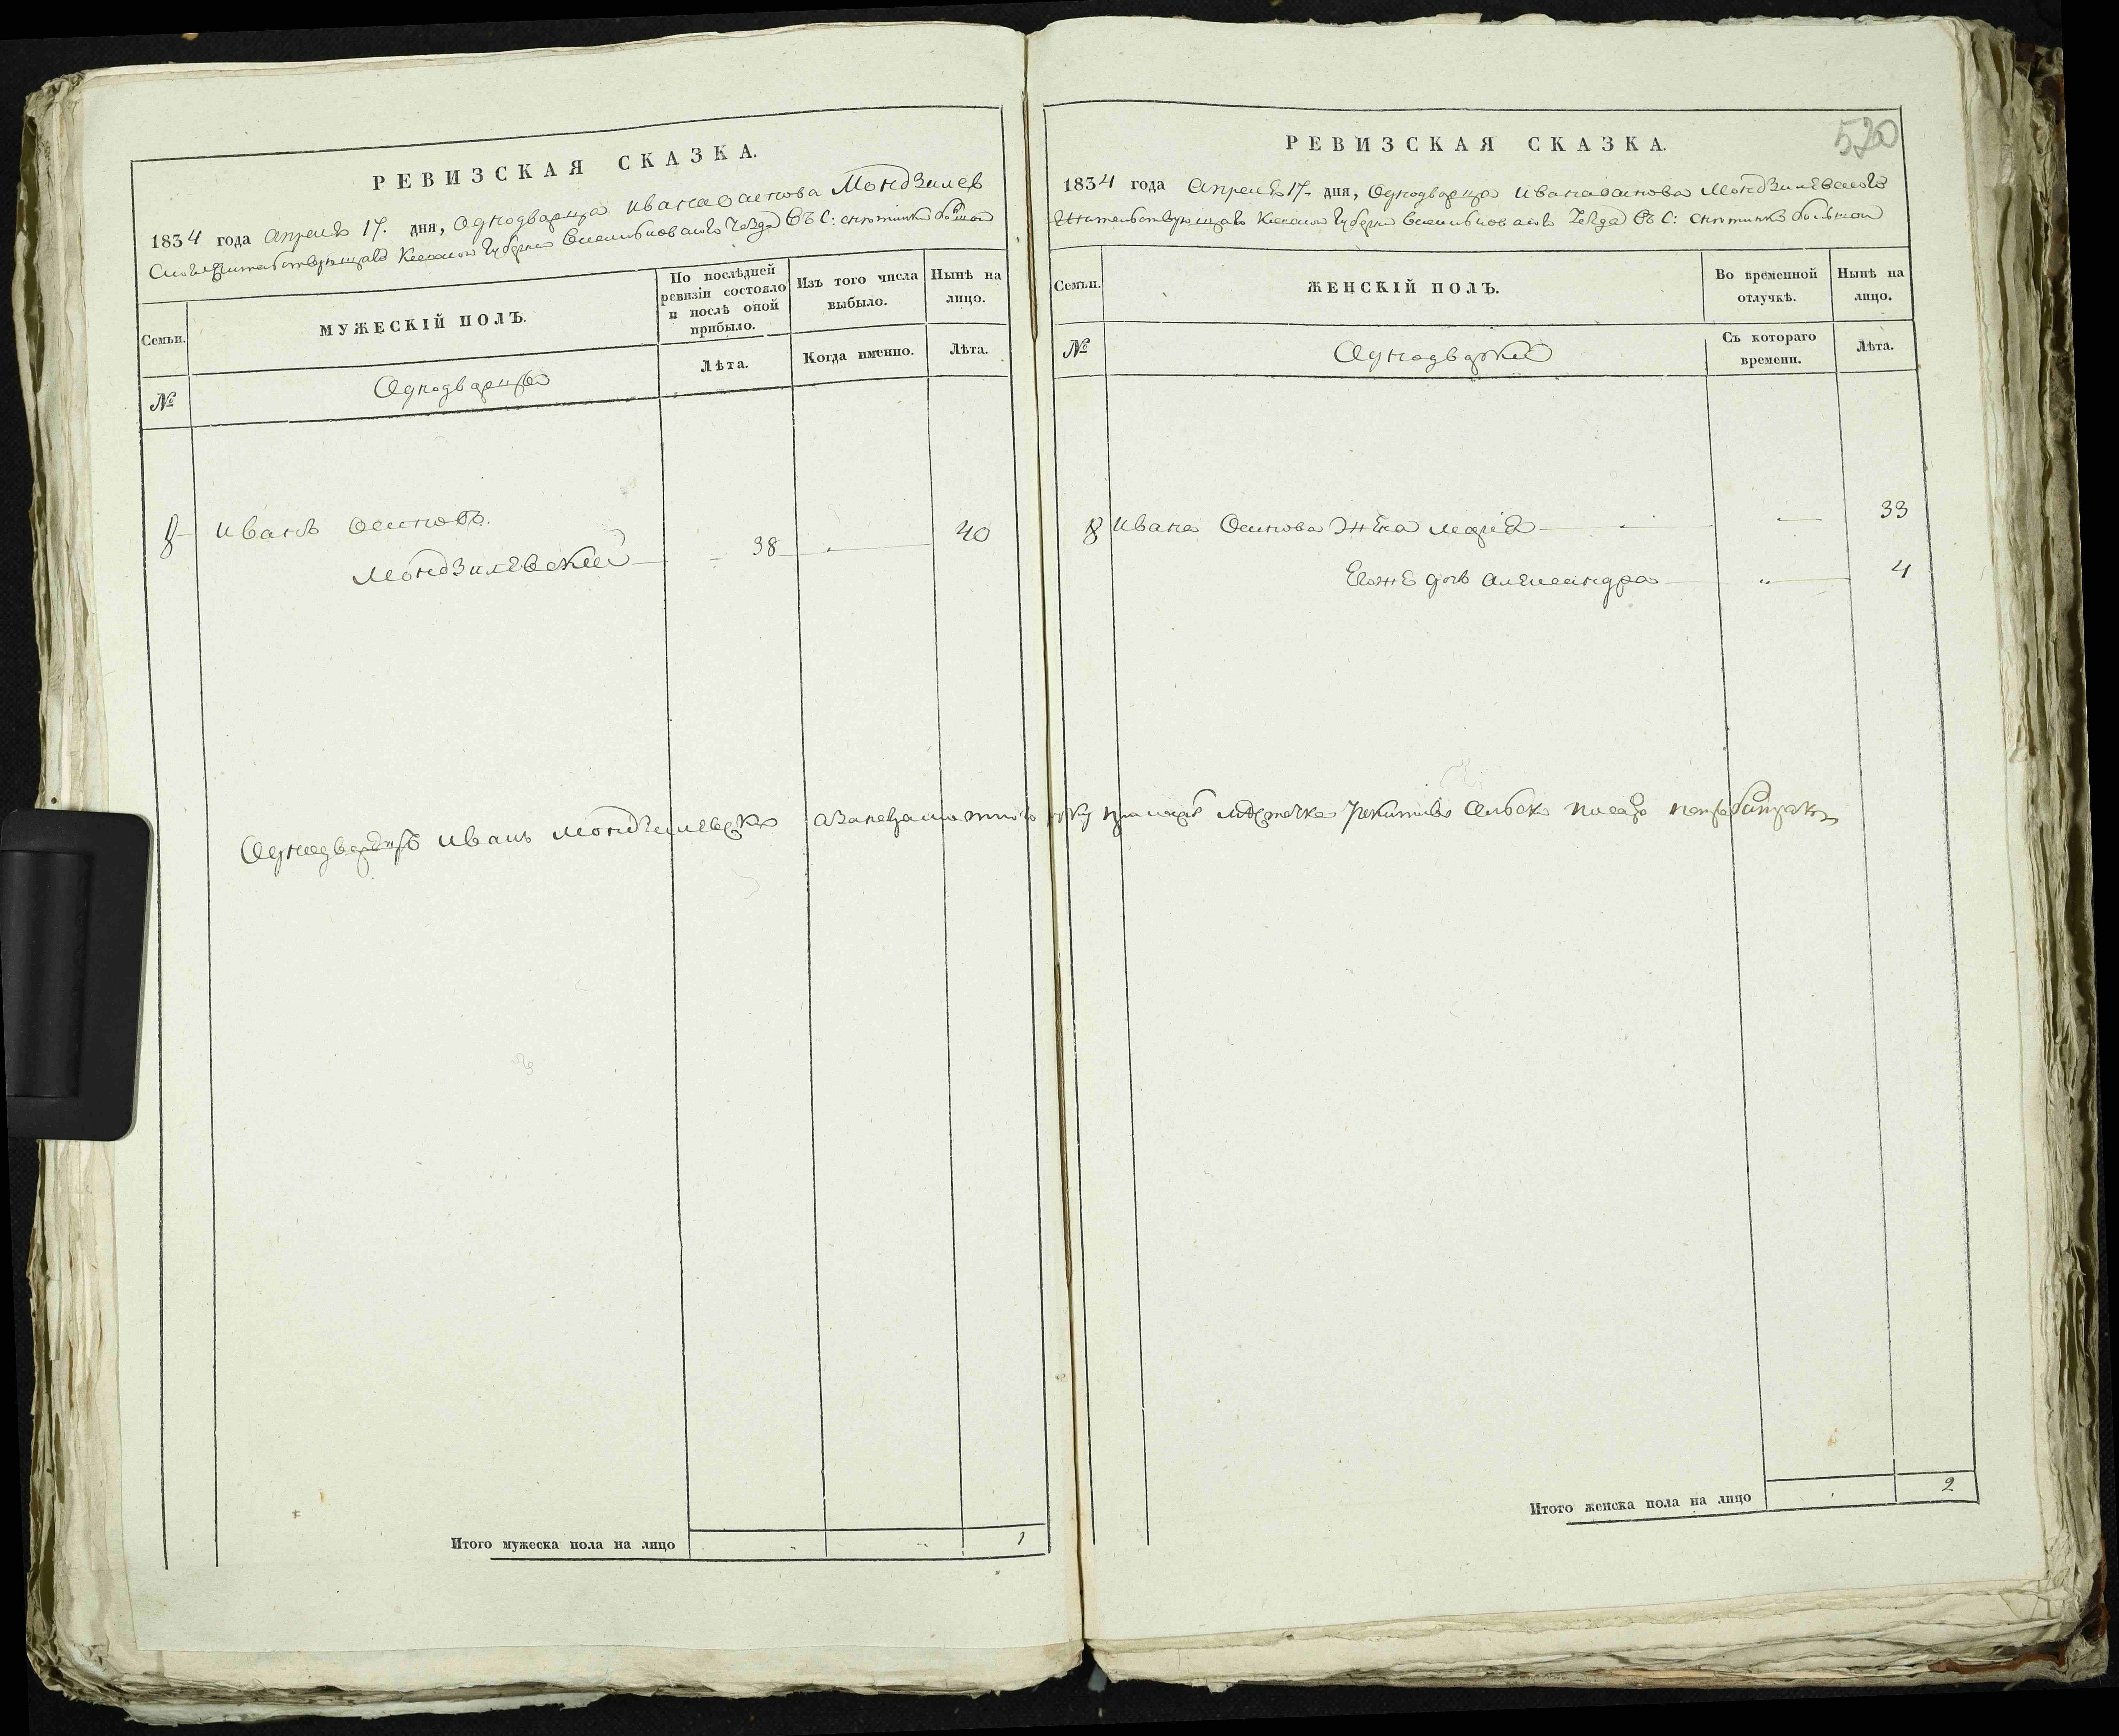 РЕВИЗСКАЯ СКАЗКА.
1834 года Апреля 17. дня, Однодварца Ивана Осипова Мондзилев
ского жительствующаго Киевской Губернии Васильковского Уезда Въ С:
МУЖЕСКІЙ ПОЛЪ.
Семьи.
По послѣдней ревизіи состояло и послѣ оной прибыло.
Изъ того числа выбыло.
Нынѣ на лицо.
№
Однодварцы
Лѣта.
Когда именно.
Лѣта.
8 Иванъ Осиповъ.
Мондзилевский 38 40
Однодварецъ Иванъ
Итого мужеска пола на лицо 1
520
РЕВИЗСКАЯ СКАЗКА.
1834 года Апреля 17. дня, Однодварца Ивана Осипова Мондзилевского
жительствующаго Киевской Губернии Васильковского Уезда Въ С:
Семьи.
ЖЕНСКІЙ ПОЛЪ.
Во временной отлучкѣ.
Нынѣ на лицо.
№
Однодворки
Съ котораго времени.
Лѣта.
8 Ивана Осипова жена Мария 33
Егоже дочь Александра 4
Итого женска пола на лицо 2